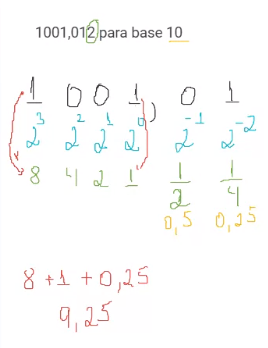 1001,012 para base 10
1 0 0 1 , 0 1
2³ 2² 2¹ 2⁰ 2⁻¹ 2⁻²
8 4 2 1 1/2 1/4
0,5 0,25
8 + 1 + 0,25
9,25